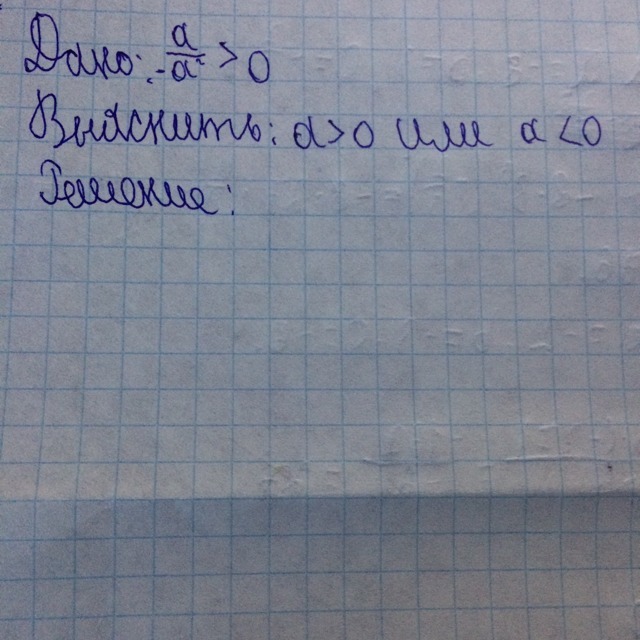 Дано: -a/a > 0
Выяснить: a>0 или a<0
Решение: